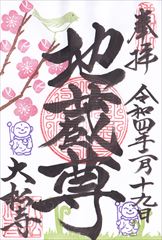 奉拝
令和四年二月十九日
地蔵尊